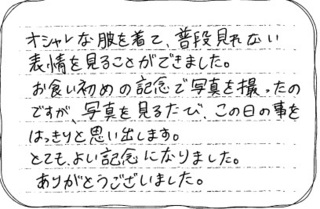 オシャレな服を着て、普段見れない
表情を見ることができました。
お食い初めの記念で写真を撮ったの
ですが、写真を見るたび、この日の事を
はっきりと思い出します。
とても、よい記念になりました。
ありがとうございました。